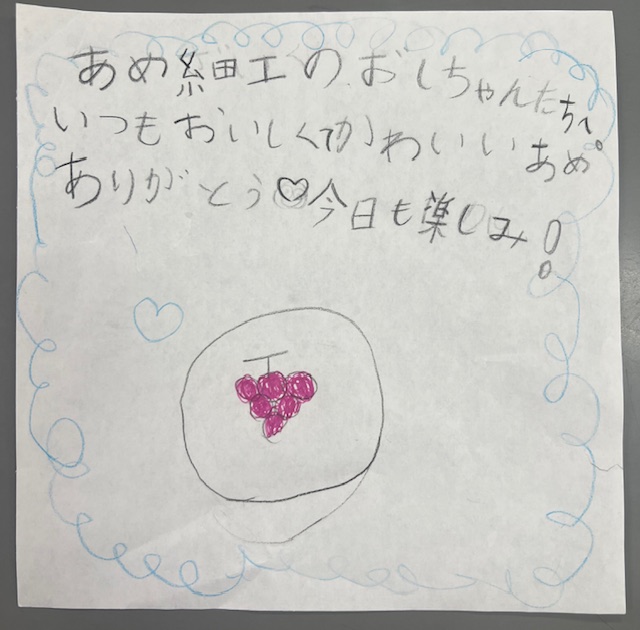 あめ細工のおじちゃんたちへ
いつもおいしくてかわいいあめ。
ありがとう♡今日も楽しみ!